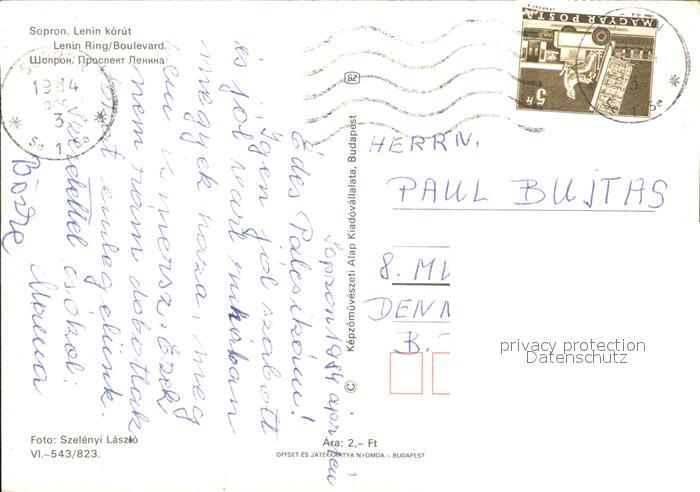 Sopron. Lenin körút
Lenin Ring/Boulevard.
Шопрон. Проспект Ленина
1984
3
1
MAGYAR POSTA
5 Ft
Sopron 1984
Édes Palcsikám!
Igen jól szabott
és jól varrt ruhában
megyek haza, meg
nem dobatlak
sokat emlegetünk.
Szeretettel csókol:
Böske Mama
HERRN.
PAUL BUJTAS
8. MÜ
DENN
B.
privacy protection
Datenschutz
Képzőművészeti Alap Kiadóvállalata, Budapest
©
Foto: Szelényi László
VI.–543/823.
Ára: 2,– Ft
OFFSET ÉS JÁTÉKKÁRTYA NYOMDA – BUDAPEST